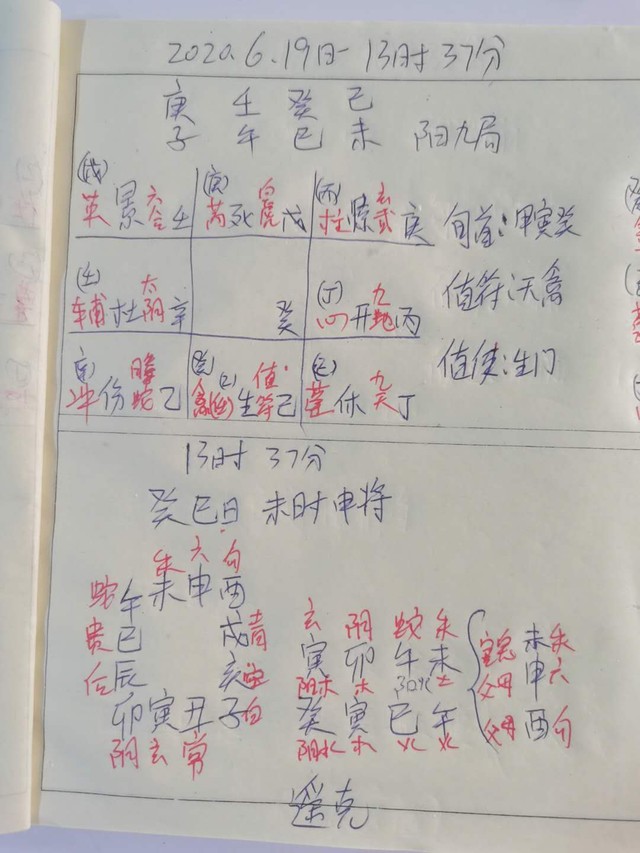 2020.6.19日-13时37分
庚 壬 癸 己
子 午 巳 未 阳九局
(戊) (庚) (丙)
英 景 六合 壬 芮 死 白虎 戊 柱 惊 玄武 庚 旬首:甲寅癸
(壬) (丁)
辅 杜 太阴 辛 癸 心 开 九地 丙 值符:天禽
冲 伤 螣蛇 乙 禽 生 值符 己 蓬 休 九天 丁 值使:生门
13时 37分
癸巳日 未时申将
朱 六 勾
蛇 午 未 申 酉
贵 巳 戌 青
辰 亥
卯 寅 丑 子 白
阴 玄 常
玄 阴 蛇 朱
寅 卯 午 未
阳木 木 阳火 土
癸 寅 巳 午
阴水 木 火 火
未 朱
父母 申 六
父母 酉 勾
遥克